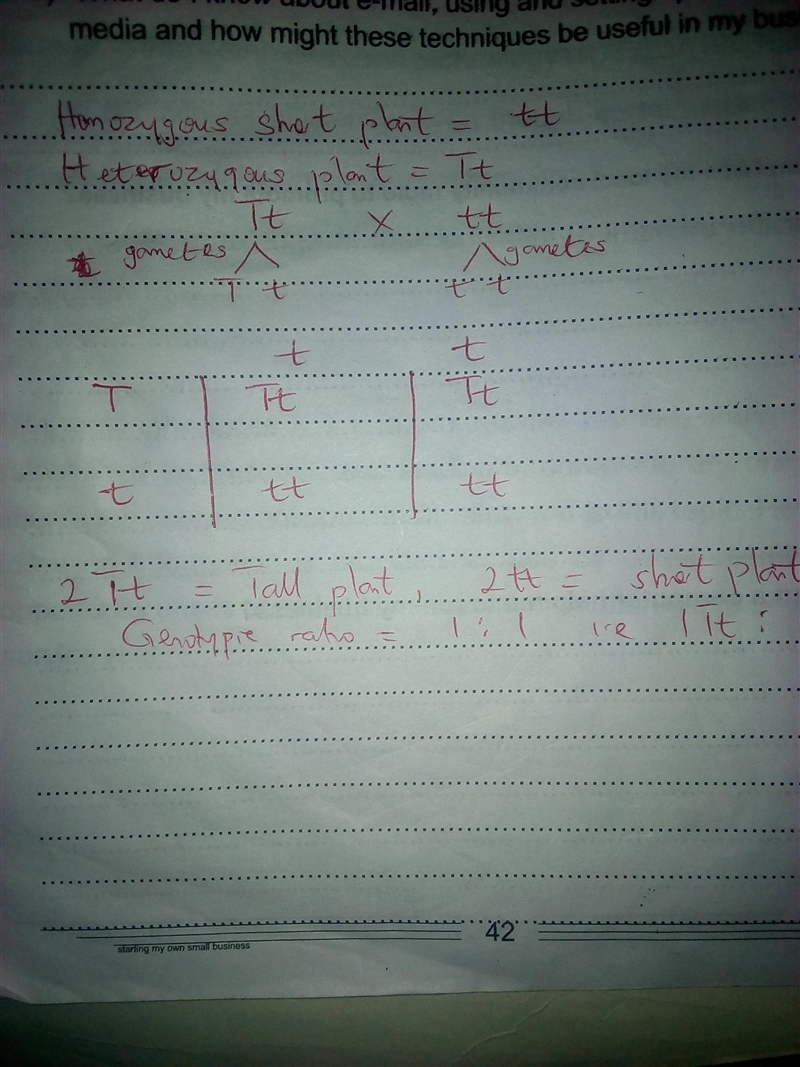 about e-mail, using and
media and how might these techniques be useful in my bus
Homozygous shot plant = tt
Heterozygous plant = Tt
Tt x tt
gametes gametes
T t t t
t t
T Tt Tt
t tt tt
2 Tt = Tall plant, 2 tt = shot plant
Genotypic ratio = 1 : 1 i.e 1 Tt :
42
starting my own small business